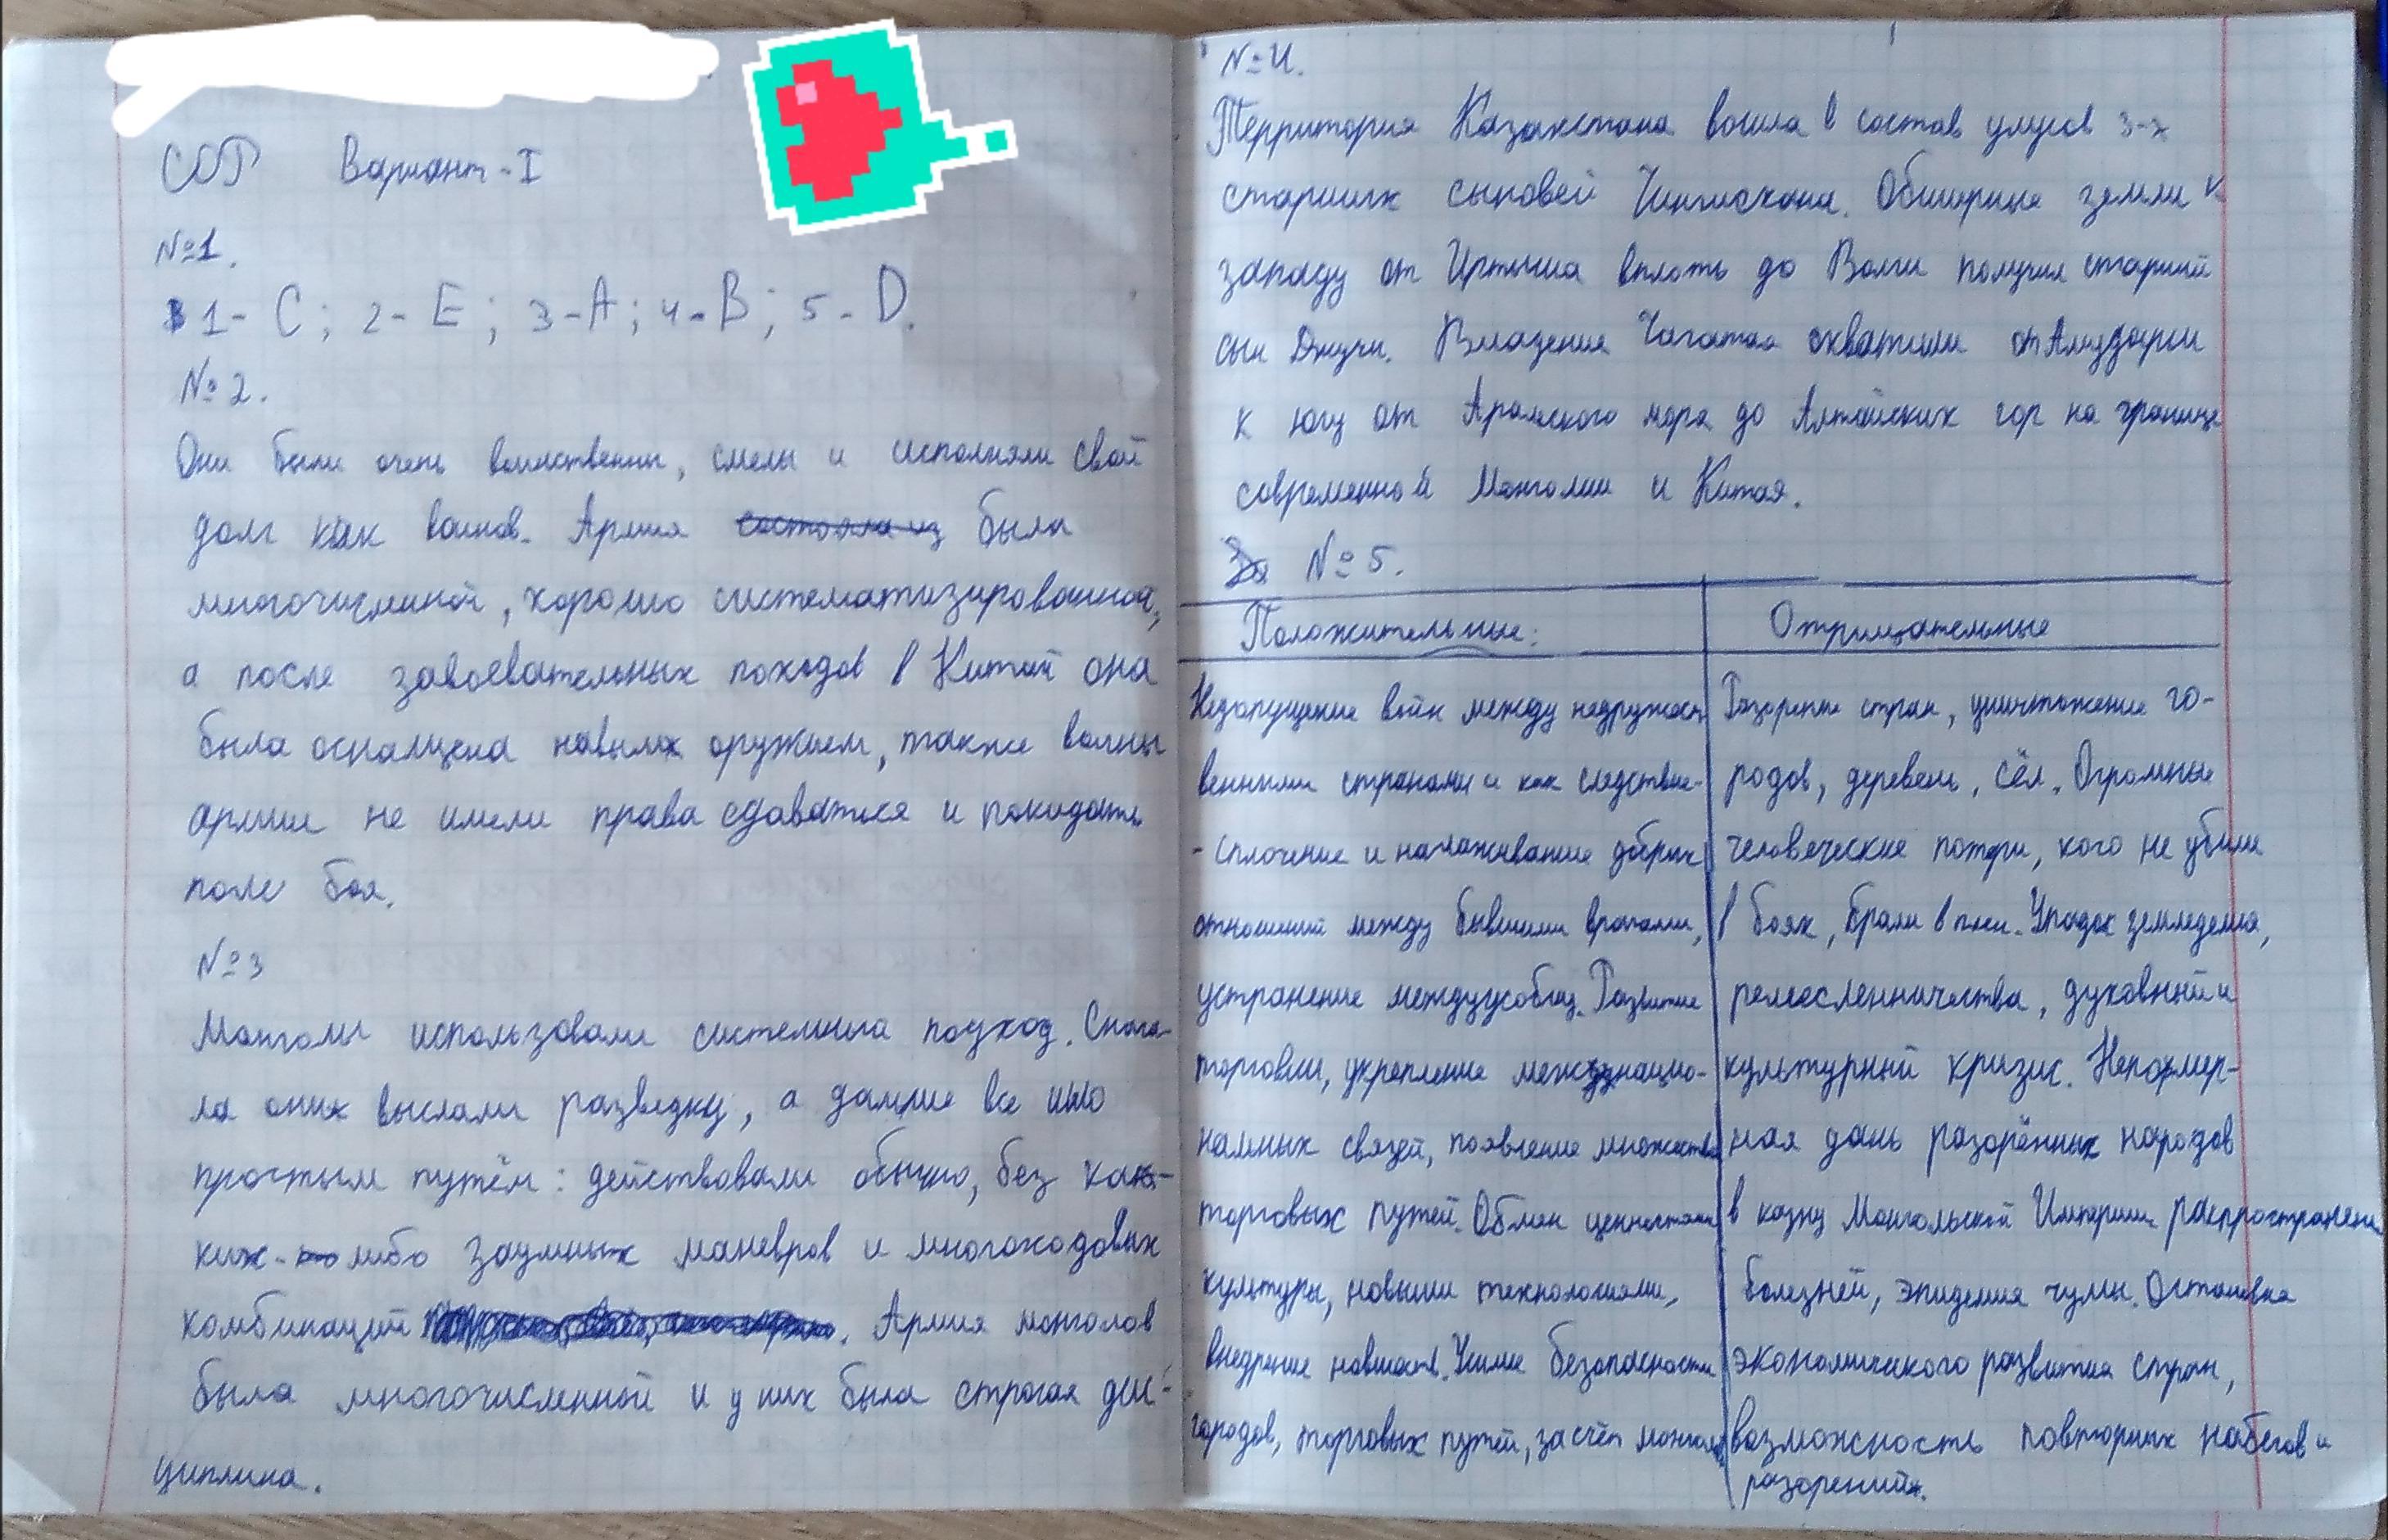 СОР Вариант-I
№1.
1- C; 2- E; 3-A; 4-B; 5- D.
№ 2.
Они были очень воинственны, смелы и исполняли свой
долг как воинов. Армия состояла из была
многочисленной, хорошо систематизированной,
а после завоевательных походов в Китай она
была оснащена новым оружием, также воины
армии не имели права сдаваться и покидать
поле боя.
№3
Монголы использовали системный подход. Снача-
ла они высылали разведку, а дальше все шло
простым путём: действовали обычно, без как-
ких-либо заумных маневров и многоходовых
комбинаций. Армия монголов
была многочисленной и у них была строгая дис-
циплина.
№4.
Территория Казахстана вошла в состав улусов 3-х
старших сыновей Чингисхана. Обширные земли к
западу от Иртыша вплоть до Волги получил старший
сын Джучи. Владения Чагатая охватили от Амударьи
к югу от Аральского моря до Алтайских гор на границе
современной Монголии и Китая.
№5.
Положительные: Отрицательные
Недопущение войн между недружест
венными странами и как следствие-
- сплочение и налаживание добрых
отношений между бывшими врагами,
устранение междуусобиц. Развитие
торговли, укрепление междунацио-
нальных связей, появление множества
торговых путей. Обмен ценностями
культуры, новыми технологиями,
внедрение новшеств. Усиление безопасности
городов, торговых путей, за счёт монголов.
Разорение стран, уничтожение го-
родов, деревень, сёл. Огромные
человеческие потери, кого не убили
в боях, брали в плен. Упадок земледелия,
ремесленничества, духовный и
культурный кризис. Непомер-
ная дань разорённых народов
в казну Монгольской Империи. распространение
болезней, эпидемия чумы. Остановка
экономического развития стран,
возможность повторных набегов и
разорений.